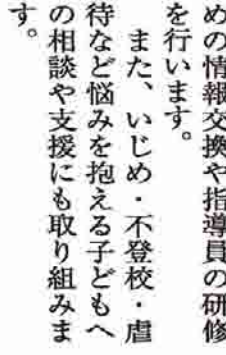 めの情報交換や指導員の研修
を行います。
また、いじめ・不登校・虐
待など悩みを抱える子どもへ
の相談や支援にも取り組みま
す。